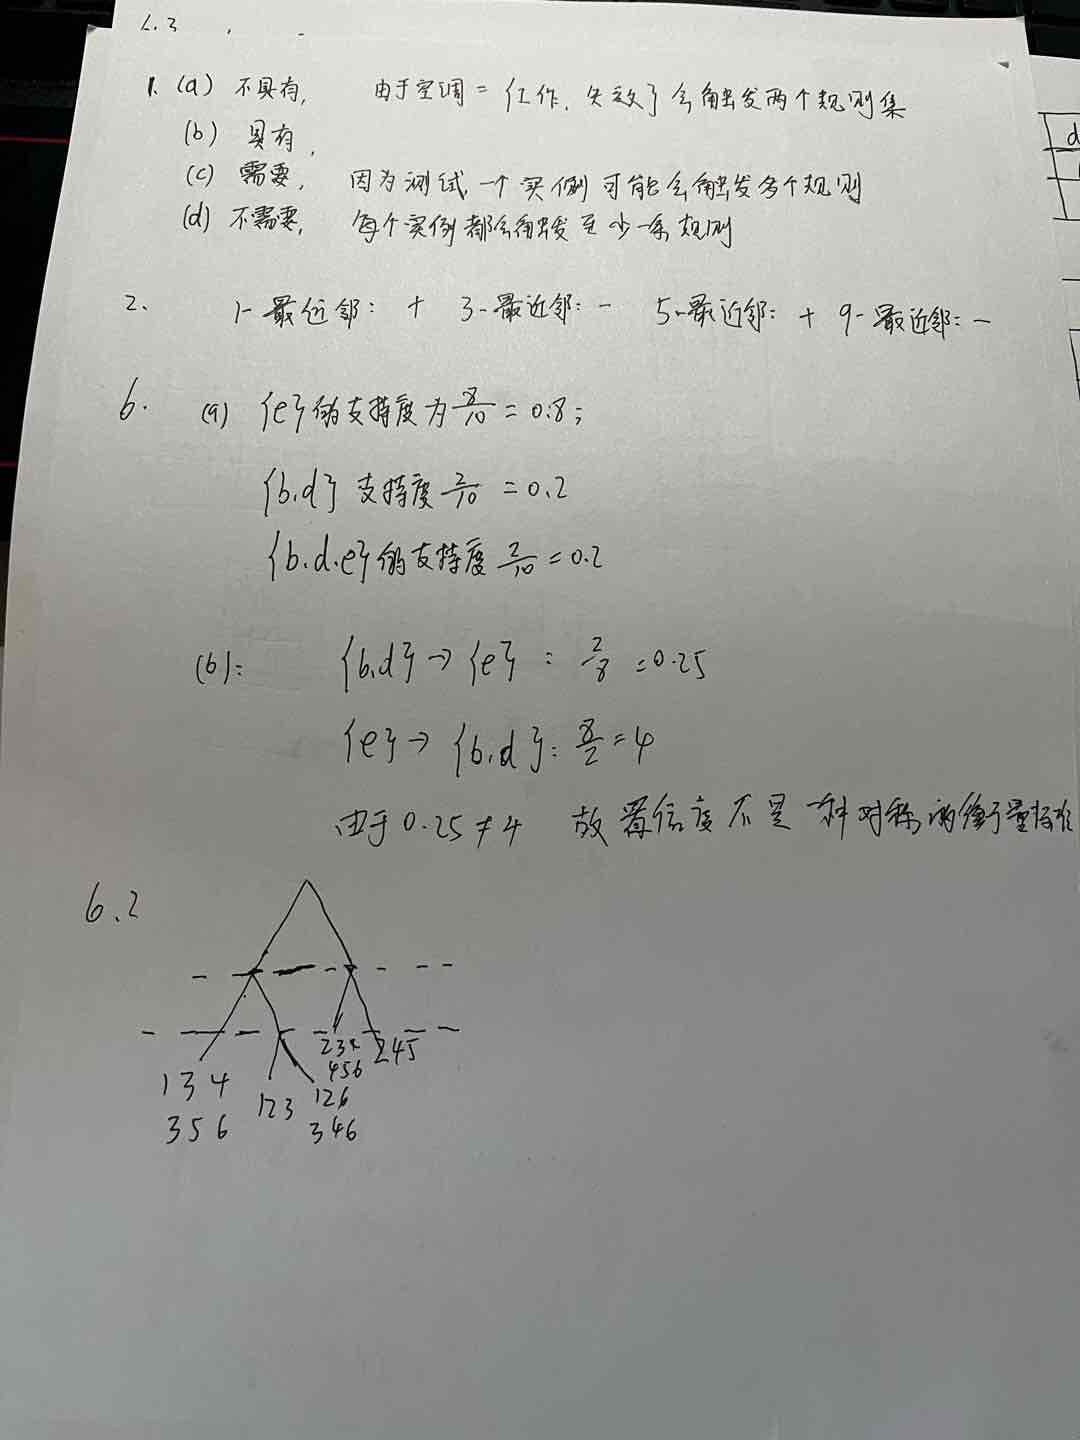 6.3
1. (a) 不具有, 由于空调=工作, 失效了会触发两个规则集
(b) 具有,
(c) 需要, 因为测试一个实例可能会触发多个规则
(d) 不需要, 每个实例都会触发至少一条规则
2. 1-最近邻: + 3-最近邻: - 5-最近邻: + 9-最近邻: -
6. (a) {e}的支持度为 8/10 = 0.8;
{b.d} 支持度 2/10 = 0.2
{b.d.e}的支持度 2/10 = 0.2
(b): {b,d} → {e} : 2/8 = 0.25
{e} → {b,d}: 8/2 = 4
由于 0.25 ≠ 4 故置信度不是一种对称的衡量标准
6.2
234 245
456
134 123 126
356 346
d